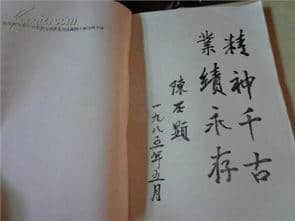 精神千古
業績永存
陳丕顯
一九八五年五月